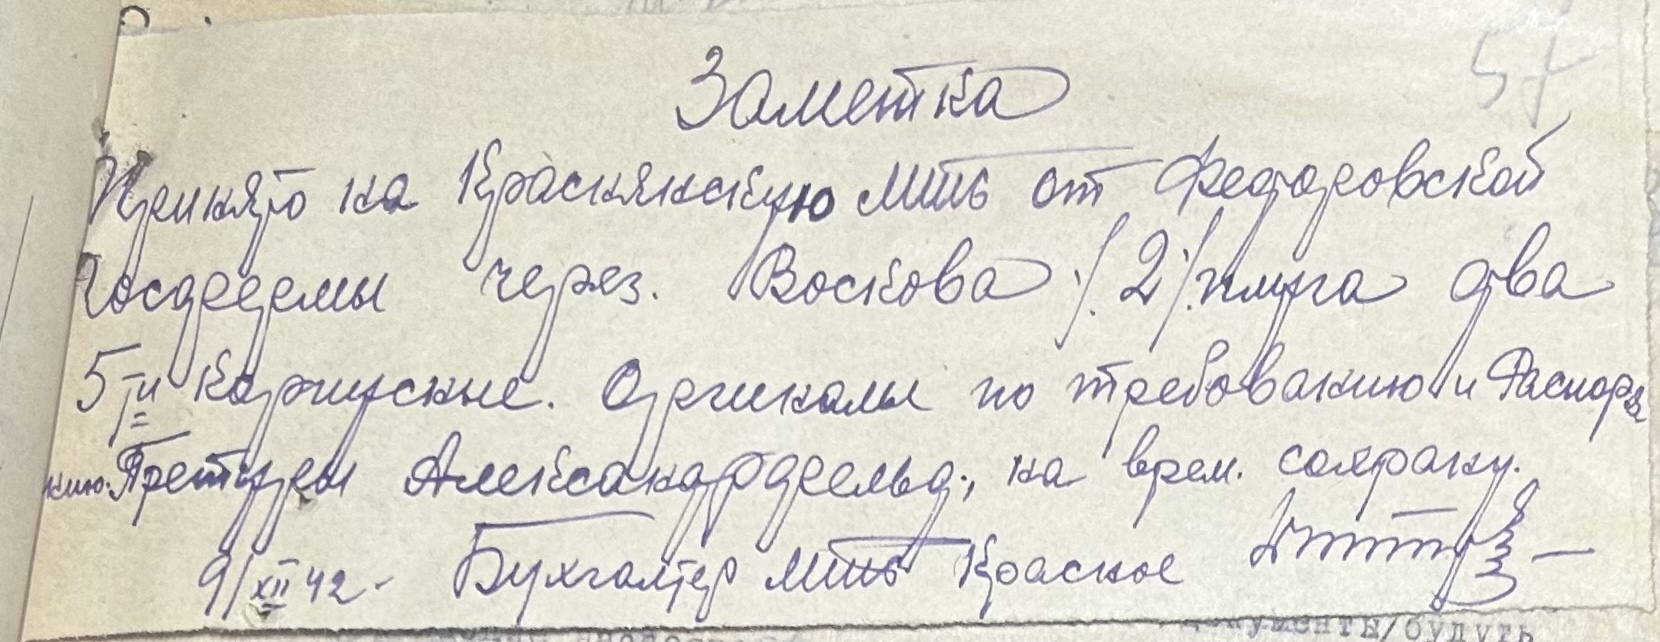 57
Заметка
Принято на Краснянскую МТС от Федоровской
Госфермы через. Воскова /2/ плуга два
5ти Корпусные. Оригиналы по требованию и Распоря
нию. Претуры Александрфельд., на врем. сохрану.
9/XII 42 - Бухгалтер МТС Красное
документы/будуть